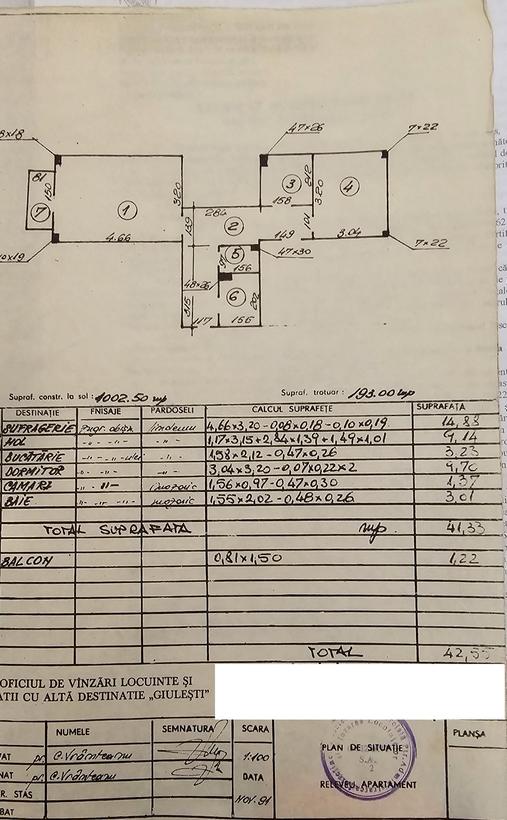 8x18
47x26
7x22
81
150
7
1
4.66
320
284
2
139
3
212
158
320
4
101
149
3.04
7x22
10x19
5
97
156
47x30
48x26
6
202
315
117
156
Supraf. constr. la sol : 1002.50 mp Supraf. trotuar : 193.00 mp
DESTINAȚIE FNISAJE PARDOSELI CALCUL SUPRAFEȚE SUPRAFAȚA
SUFRAGERIE zugr. obișn. linoleum 4,66x3,20-0,08x0,18-0,10x0,19 14,88
HOL 1,17x3,15+2,84x1,39+1,49x1,01 9,14
BUCĂTĂRIE 1,58x2,12-0,47x0,26 3,23
DORMITOR 3,04x3,20-0,07x0,22x2 9,70
CĂMARĂ mozaic 1,56x0,97-0,47x0,30 1,37
BAIE mozaic 1,55x2,02-0,48x0,26 3,01
TOTAL SUPRAFAȚA mp 41,33
BALCON 0,81x1,50 1,22
TOTAL 42,55
OFICIUL DE VÎNZĂRI LOCUINTE ȘI
ATII CU ALTĂ DESTINATIE „GIULEȘTI”
NUMELE SEMNATURA SCARA
PLANȘA
VAT pr. C. Vrânteanu 1:100
PLAN DE SITUAȚIE
NAT pr. C. Vrânteanu DATA
S.A.
2
R. STAS NOV. 91
RELEVEU APARTAMENT
BAT